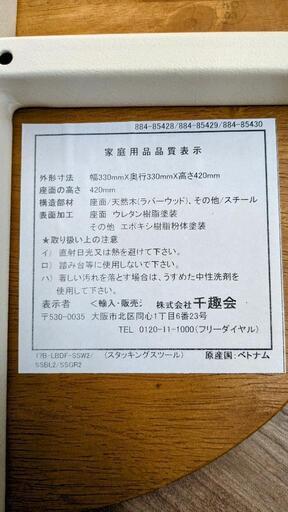 884-85428/884-85429/884-85430
家庭用品品質表示
外形寸法 幅330mmX奥行330mmX高さ420mm
座面の高さ 420mm
構造部材 座面/天然木(ラバーウッド)、その他/スチール
表面加工 座面 ウレタン樹脂塗装
その他 エポキシ樹脂粉体塗装
★取り扱い上の注意
イ) 直射日光又は熱を避けて下さい。
ロ) 踏み台等に使用しないで下さい。
ハ) 著しい汚れを落とす場合は、うすめた中性洗剤を
使用して下さい。
表示者 <輸入・販売> 株式会社 千趣会
〒530-0035 大阪市北区同心1丁目6番23号
TEL 0120-11-1000(フリーダイヤル)
17B-LBDF-SSW2/ (スタッキングスツール) 原産国:ベトナム
SSBL2/SSGR2